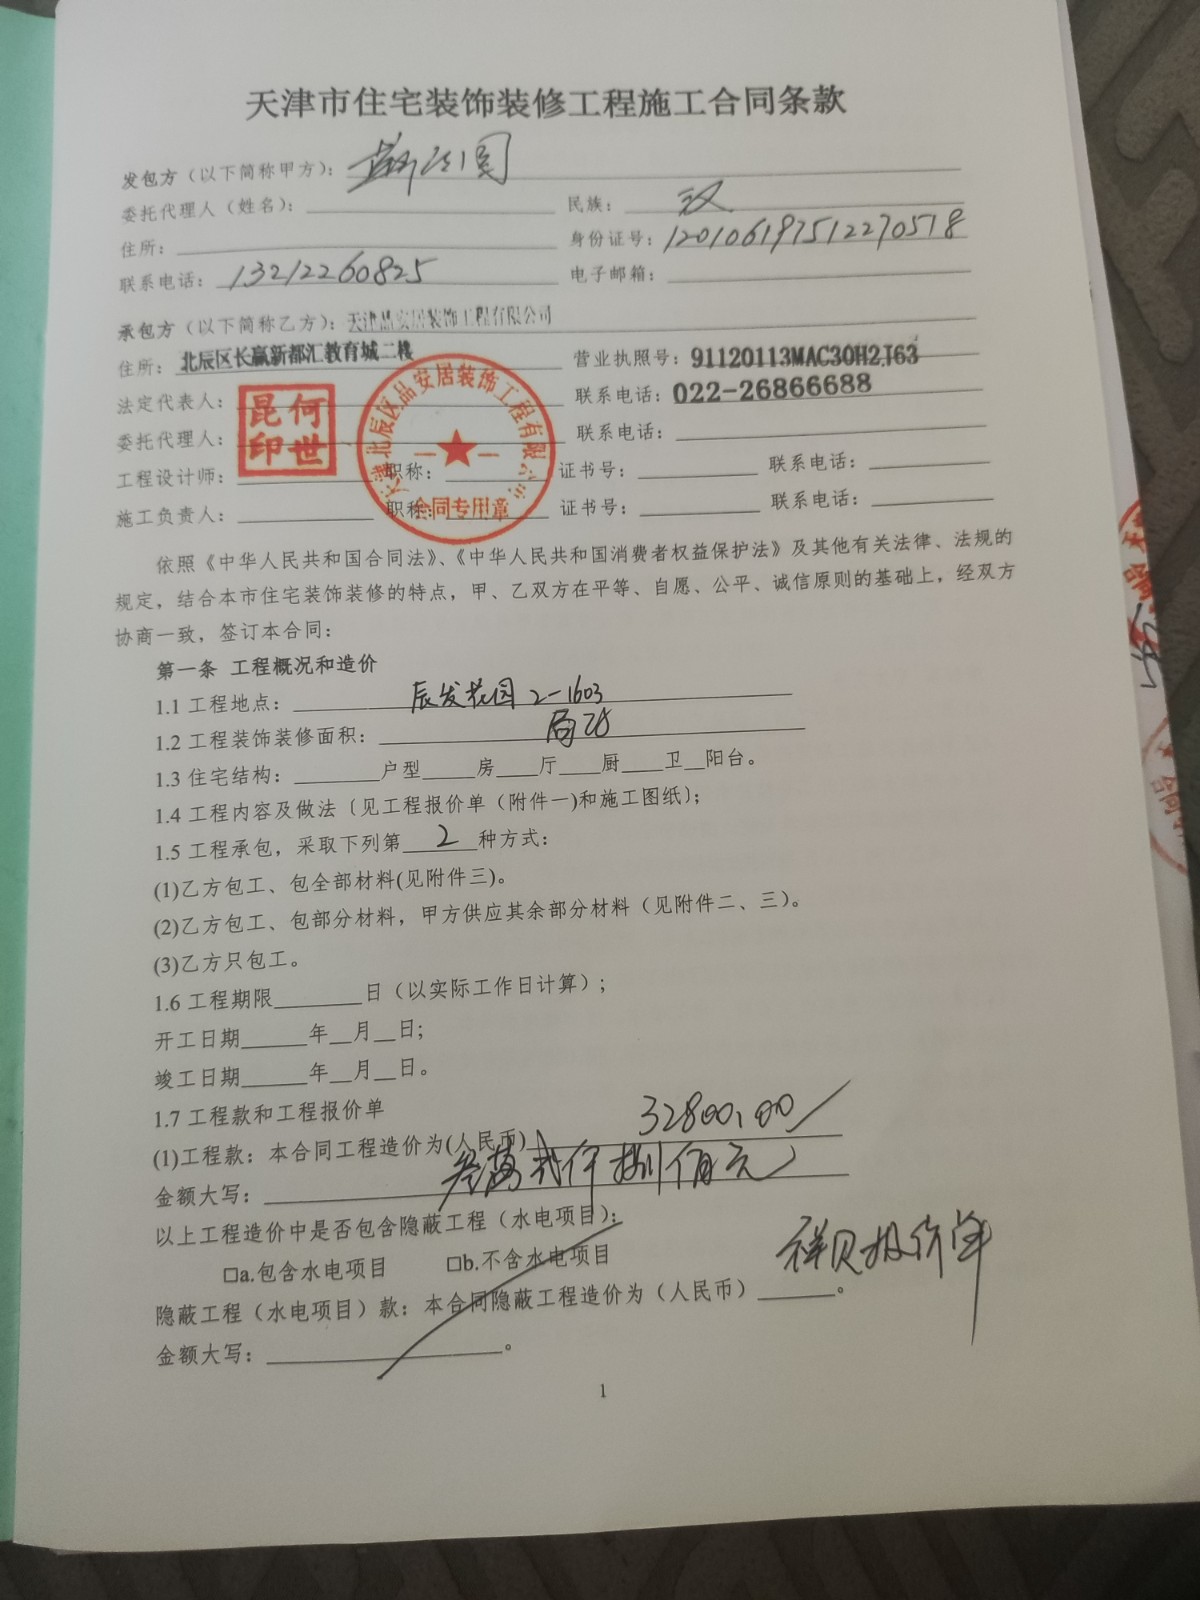 天津市住宅装饰装修工程施工合同条款
发包方（以下简称甲方）：
委托代理人（姓名）：________ 民族：汉
住所：________ 身份证号：120106197512270578
联系电话：13212260825 电子邮箱：________
承包方（以下简称乙方）：天津品安居装饰工程有限公司
住所：北辰区长赢新都汇教育城二楼 营业执照号：91120113MAC30H2J63
法定代表人：________ 联系电话：022-26866688
委托代理人：________ 联系电话：________
工程设计师：________ 职称：________ 证书号：________ 联系电话：________
施工负责人：________ 职称：________ 证书号：________ 联系电话：________
昆何
印世
天津北辰区品安居装饰工程有限公司
合同专用章
依照《中华人民共和国合同法》、《中华人民共和国消费者权益保护法》及其他有关法律、法规的
规定，结合本市住宅装饰装修的特点，甲、乙双方在平等、自愿、公平、诚信原则的基础上，经双方
协商一致，签订本合同：
第一条 工程概况和造价
1.1 工程地点：辰发花园 2-1603
1.2 工程装饰装修面积：局改
1.3 住宅结构：________户型_____房____厅____厨____卫__阳台。
1.4 工程内容及做法〔见工程报价单（附件一)和施工图纸〕；
1.5 工程承包，采取下列第 2 种方式：
(1)乙方包工、包全部材料(见附件三)。
(2)乙方包工、包部分材料，甲方供应其余部分材料（见附件二、三）。
(3)乙方只包工。
1.6 工程期限________日（以实际工作日计算）；
开工日期______年__月__日；
竣工日期______年__月__日。
1.7 工程款和工程报价单
(1)工程款：本合同工程造价为(人民币) 32800.00
金额大写：叁萬贰仟捌佰元
以上工程造价中是否包含隐蔽工程（水电项目）：
□a.包含水电项目 □b.不含水电项目
祥见报价单
隐蔽工程（水电项目）款：本合同隐蔽工程造价为（人民币）______。
金额大写：________。
1